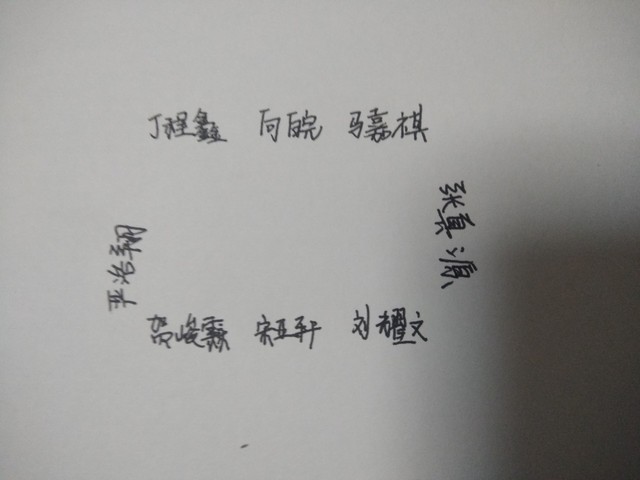 丁程鑫 向皖 马嘉祺
张真源
严浩翔
贺峻霖 宋亚轩 刘耀文